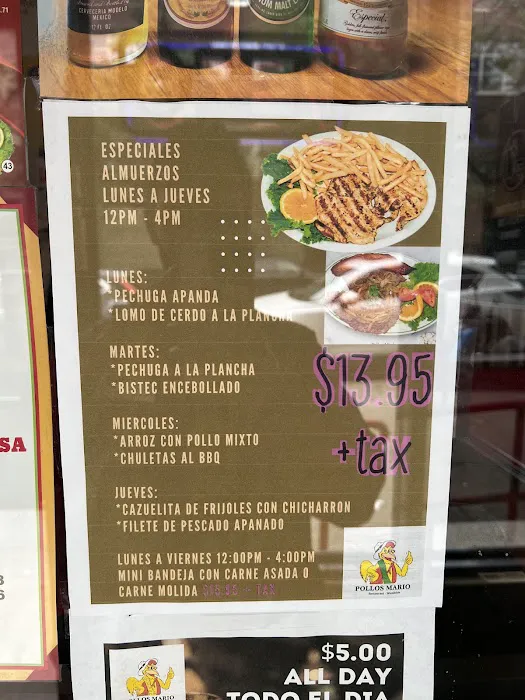 .71
CERVECERIA MODELO
MEXICO
Especial
43
ESPECIALES
ALMUERZOS
LUNES A JUEVES
12PM - 4PM
LUNES:
*PECHUGA APANDA
*LOMO DE CERDO A LA PLANCHA
MARTES:
*PECHUGA A LA PLANCHA
*BISTEC ENCEBOLLADO
$13.95
+tax
MIERCOLES:
*ARROZ CON POLLO MIXTO
*CHULETAS AL BBQ
JUEVES:
*CAZUELITA DE FRIJOLES CON CHICHARRON
*FILETE DE PESCADO APANADO
LUNES A VIERNES 12:00PM - 4:00PM
MINI BANDEJA CON CARNE ASADA O
CARNE MOLIDA + TAX
POLLOS MARIO
SA
$5.00
ALL DAY
TODO EL DIA
POLLOS MARIO